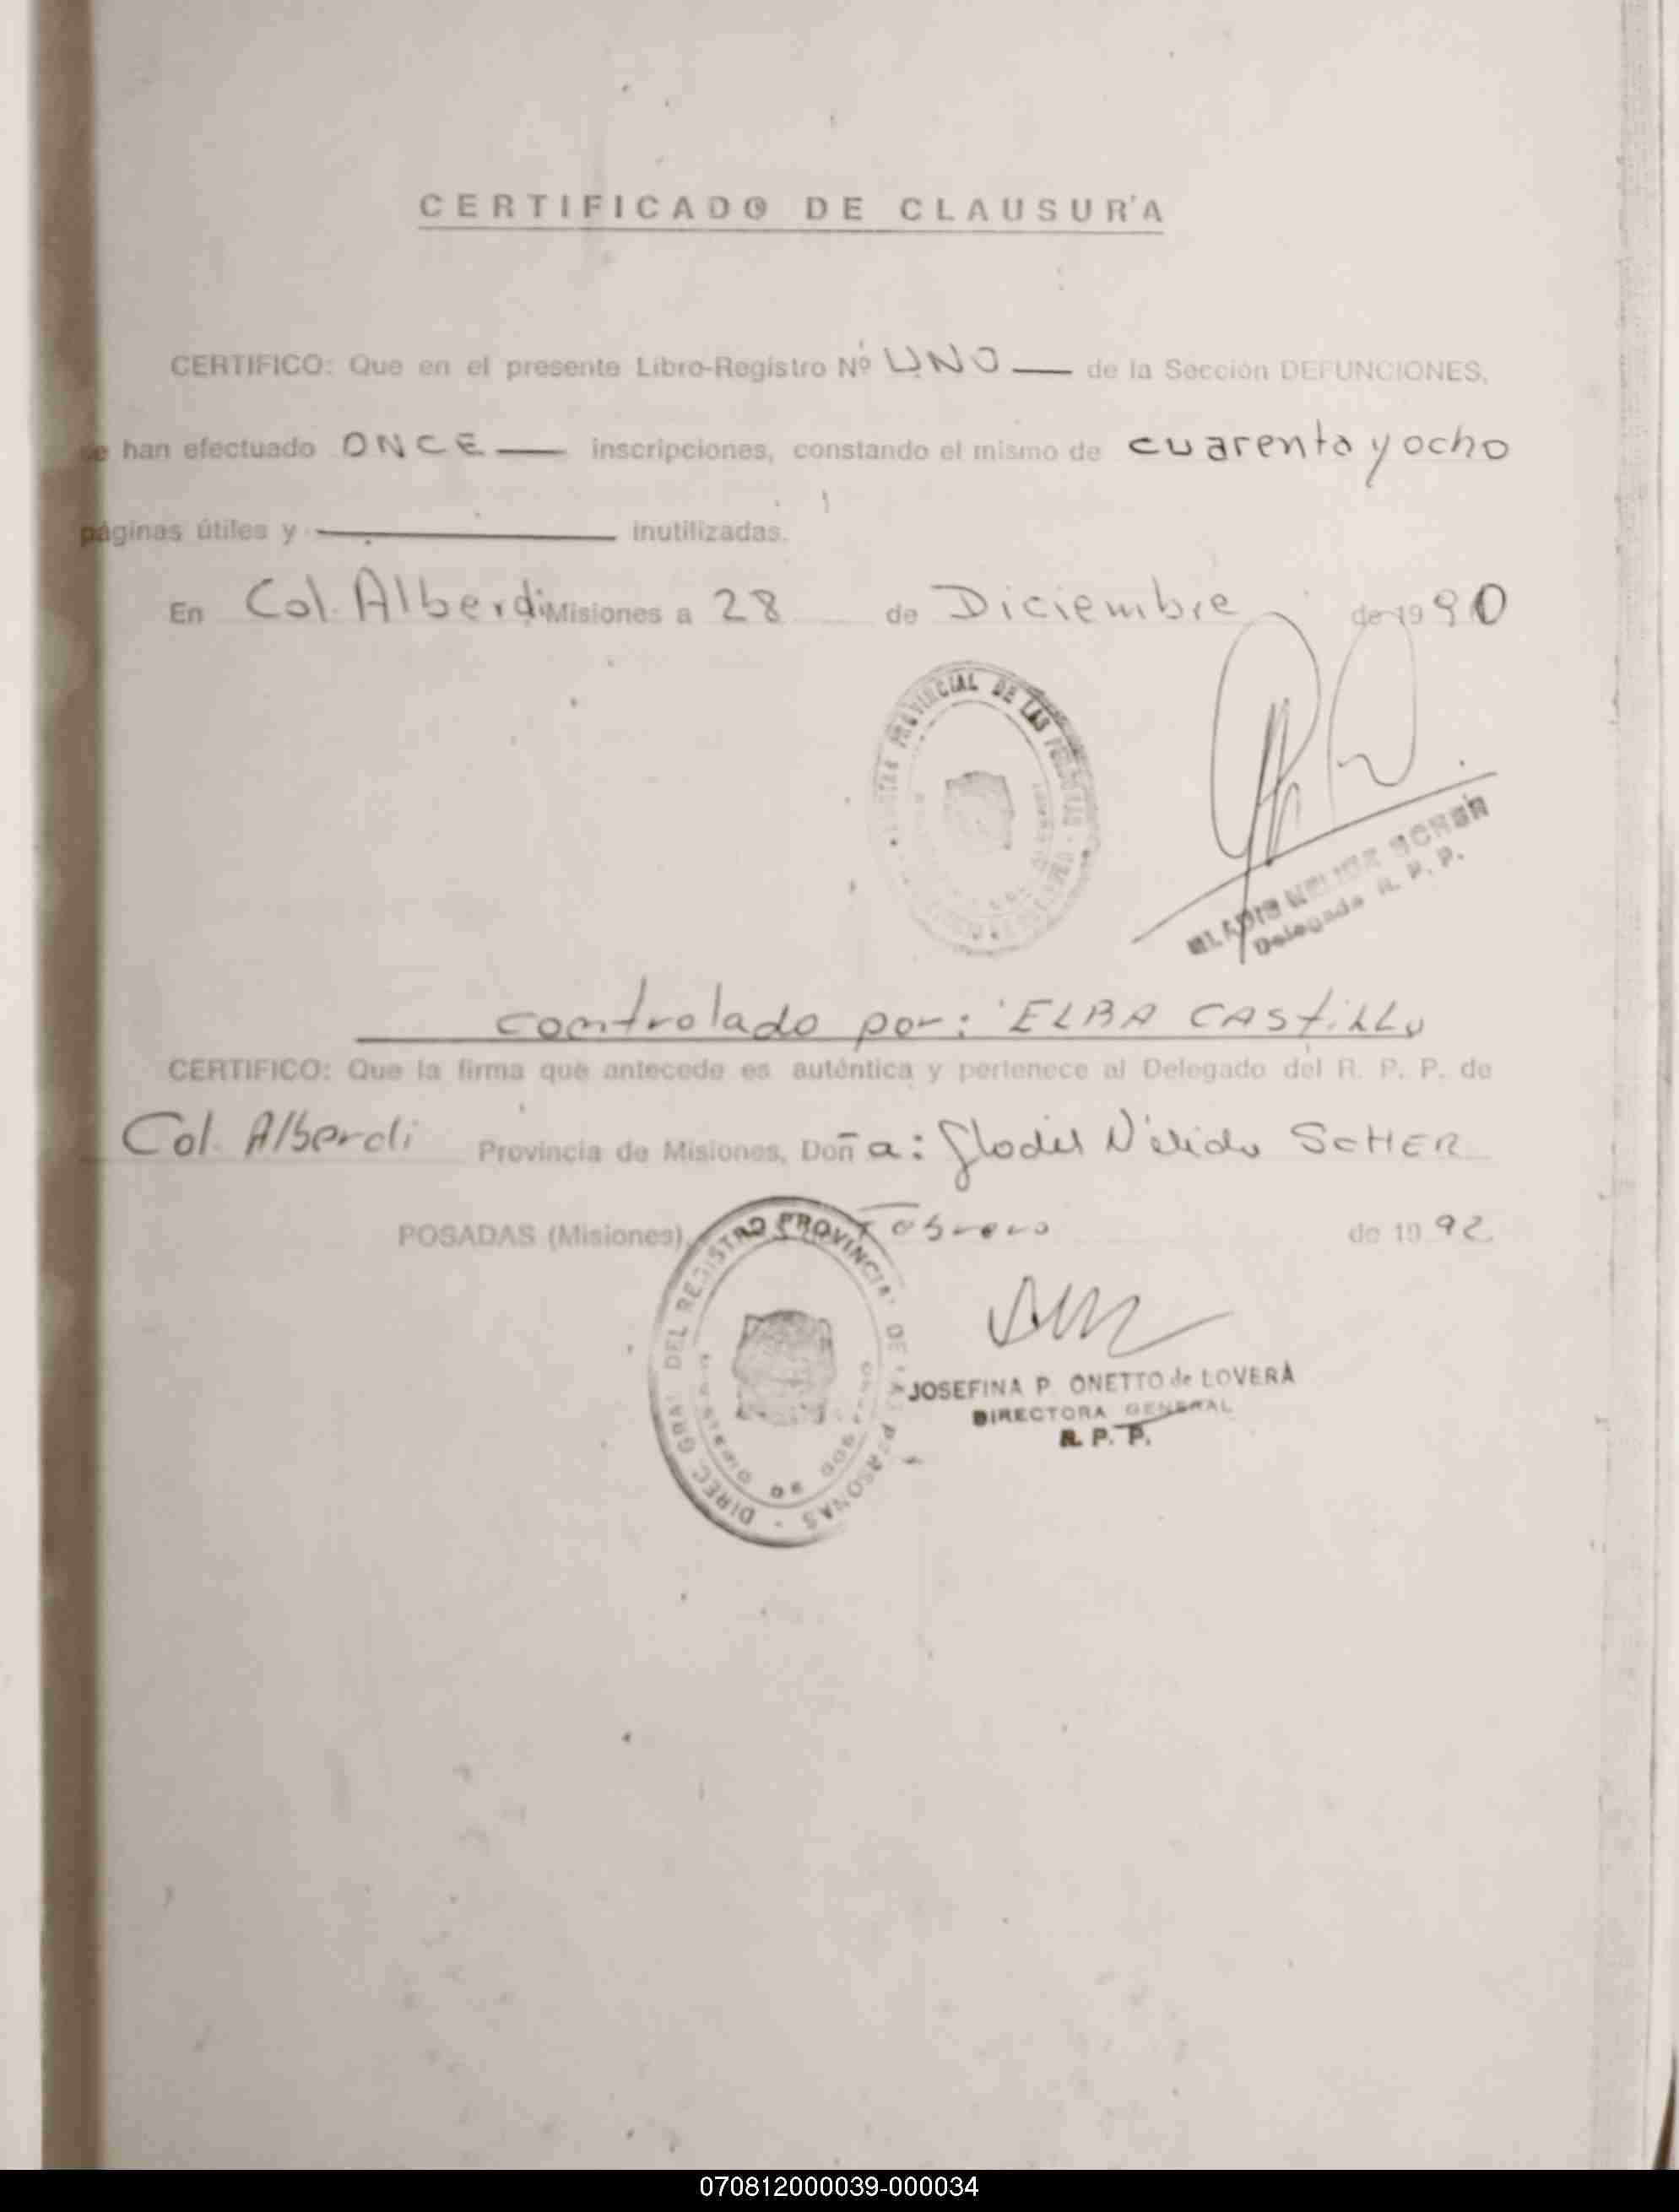 CERTIFICADO DE CLAUSURA
CERTIFICO: Que en el presente Libro-Registro Nº UNO — de la Sección DEFUNCIONES,
se han efectuado ONCE — inscripciones, constando el mismo de cuarenta y ocho
páginas útiles y — inutilizadas.
En Col. Alberdi Misiones a 28 de Diciembre de 1990
PROVINCIAL DE LAS
Delegada R. P. P.
controlado por: ELBA CASTILLO
CERTIFICO: Que la firma que antecede es auténtica y pertenece al Delegado del R. P. P. de
Col. Alberdi Provincia de Misiones, Doña: Gladis Nélida SCHER
POSADAS (Misiones), Febrero de 1992
DIREC. GRAL DEL REGISTRO PROVINCIAL DE LAS PERSONAS -
JOSEFINA P. ONETTO de LOVERA
DIRECTORA GENERAL
R. P. P.
070812000039-000034